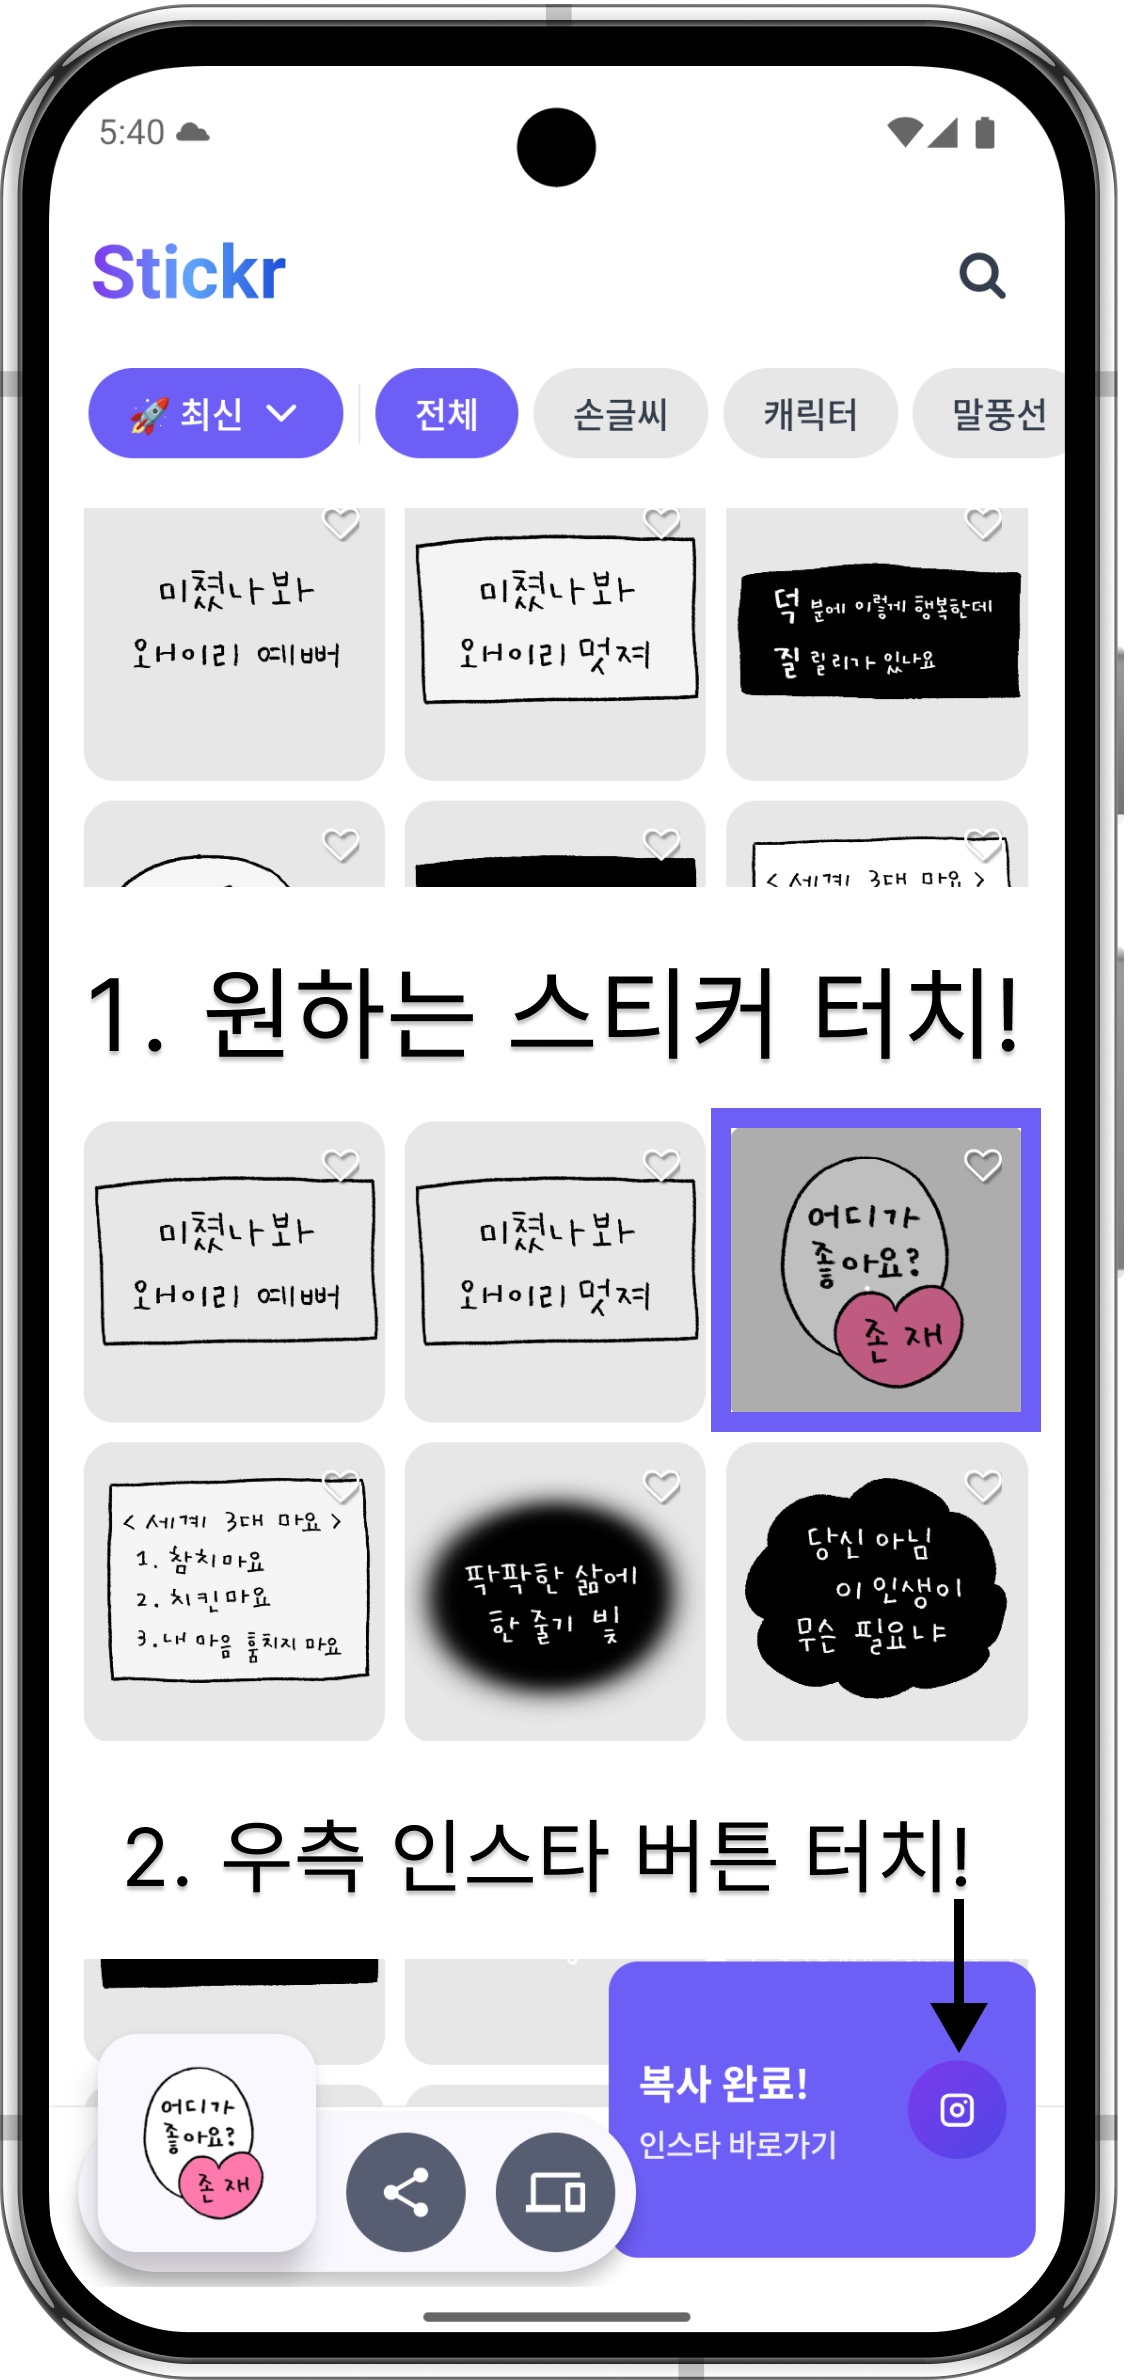 5:40
Stickr
🚀 최신
전체
손글씨
캐릭터
말풍선
미쳤나봐
왜이리 예뻐
미쳤나봐
왜이리 멋져
덕 분에 이렇게 행복한데
질 릴리가 있나요
< 세계 3대 마요 >
1. 원하는 스티커 터치!
미쳤나봐
왜이리 예뻐
미쳤나봐
왜이리 멋져
어디가
좋아요?
존재
< 세계 3대 마요 >
1. 참치마요
2. 치킨마요
3. 내 마음 훔치지 마요
팍팍한 삶에
한 줄기 빛
당신 아님
이 인생이
무슨 필요냐
2. 우측 인스타 버튼 터치!
어디가
좋아요?
존재
복사 완료!
인스타 바로가기